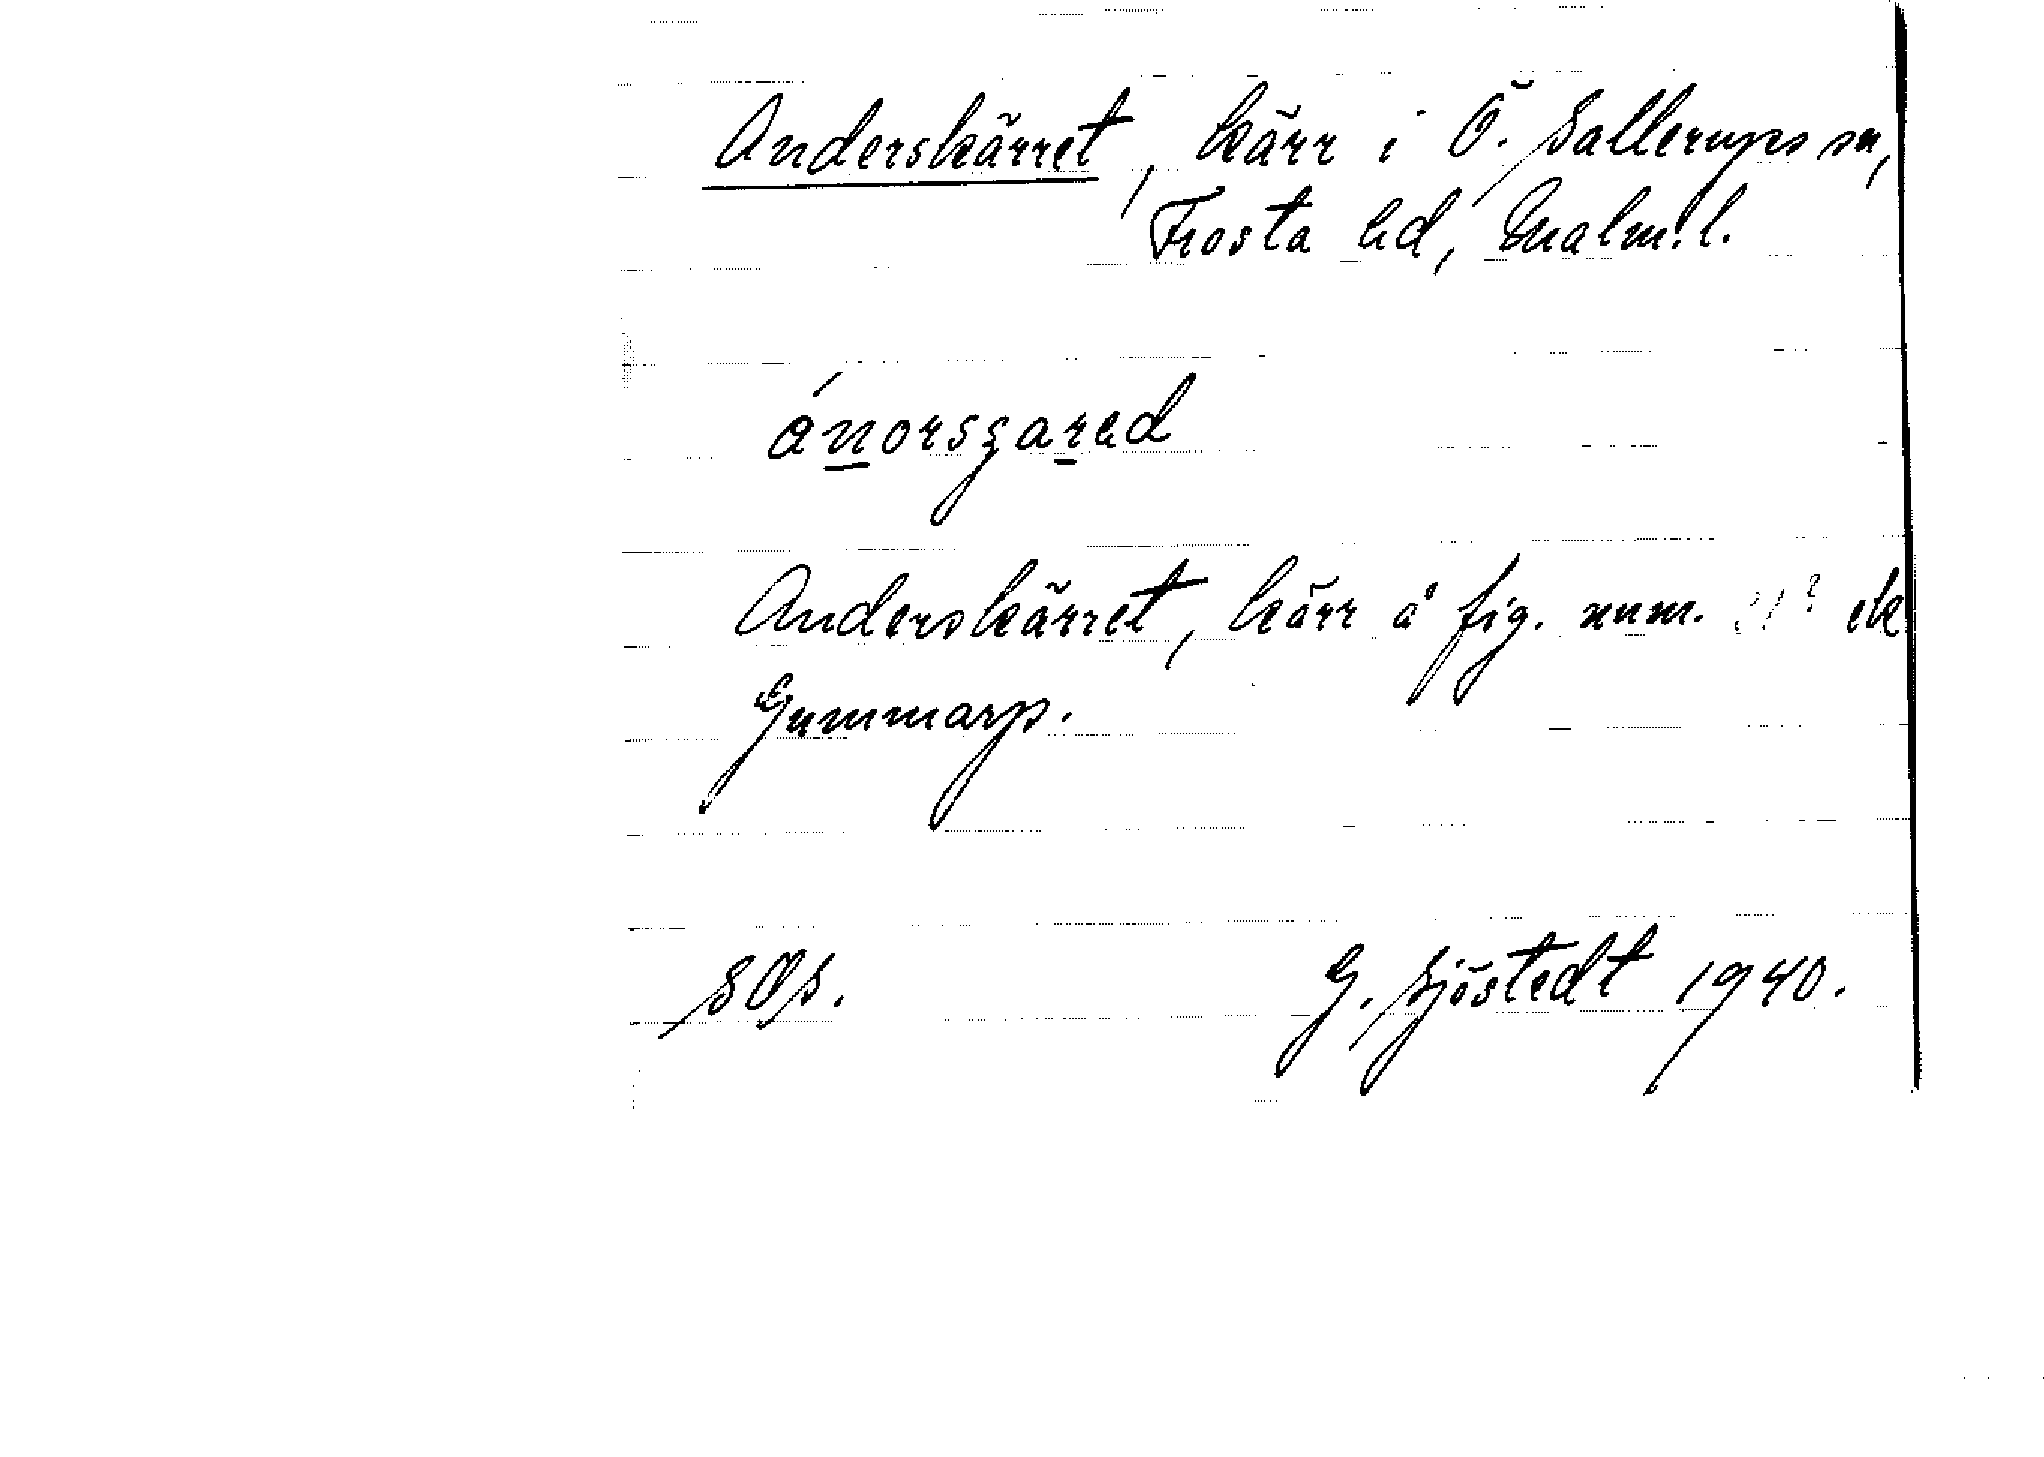 Anderskärret, kärr i Ö. Sallerups sn,
Frosta hd, Malm.l.
Anderskärret, kärr å fig. num.
Gummarp.
SOS.
G. Sjöstedt 1940.